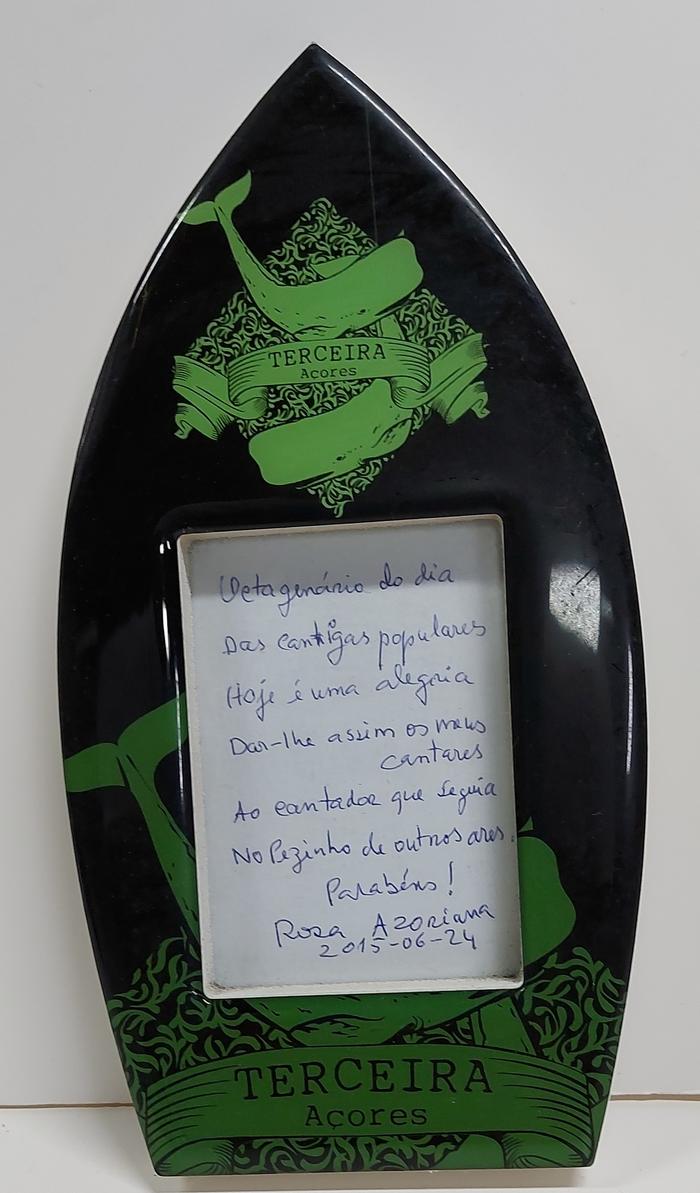 TERCEIRA
Açores
Octagenário do dia
Das cantigas populares
Hoje é uma alegria
Dar-lhe assim os meus
cantares
Ao cantador que seguia
No Pezinho de outros ares.
Parabéns!
Rosa Azoriana
2015-06-24
TERCEIRA
Açores